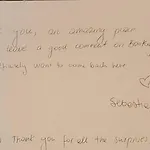 you, an amazing place
leave a good comment on Booking
want to come back here
Sebastia
Thank you for all the surprises